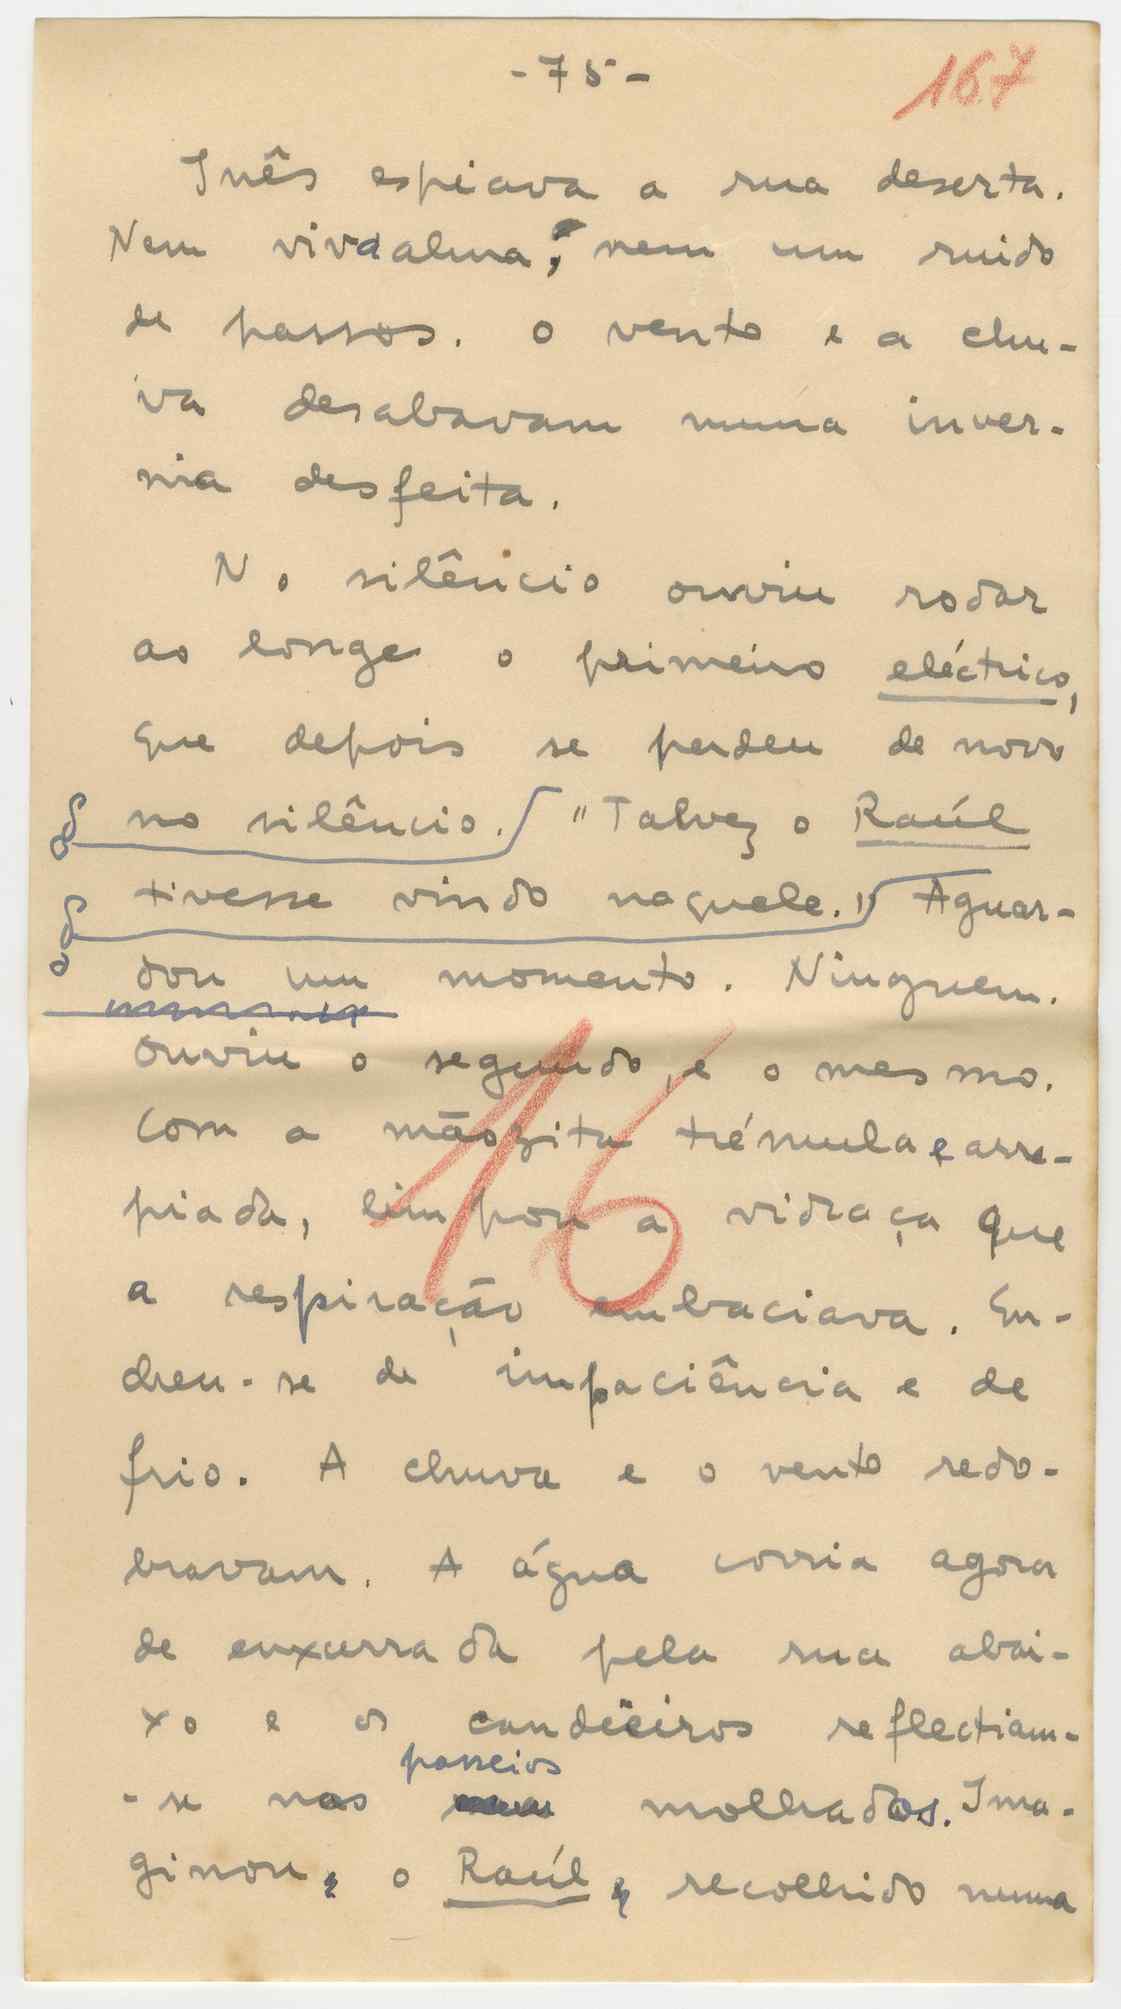 -75-
167
Inês espiava a rua deserta.
Nem vivaalma, nem um ruido
de passos. O vento e a chu-
va desabavam numa inver-
nia desfeita.
No silêncio ouviu rodar
ao longe o primeiro eléctrico,
que depois se perdeu de novo
no silêncio. "Talvez o Raúl
tivesse vindo naquele." Aguar-
dou um momento. Ninguem.
Ouviu o segundo, e o mesmo.
Com a mãozita trémula e arre-
piada, limpou a vidraça que
16
a respiração embaciava. En-
cheu-se de impaciência e de
frio. A chuva e o vento redo-
bravam. A água corria agora
de enxurrada pela rua abai-
xo e os candieiros reflectiam-
passeios
-se nos molhados. Ima-
ginou, o Raúl, recolhido numa